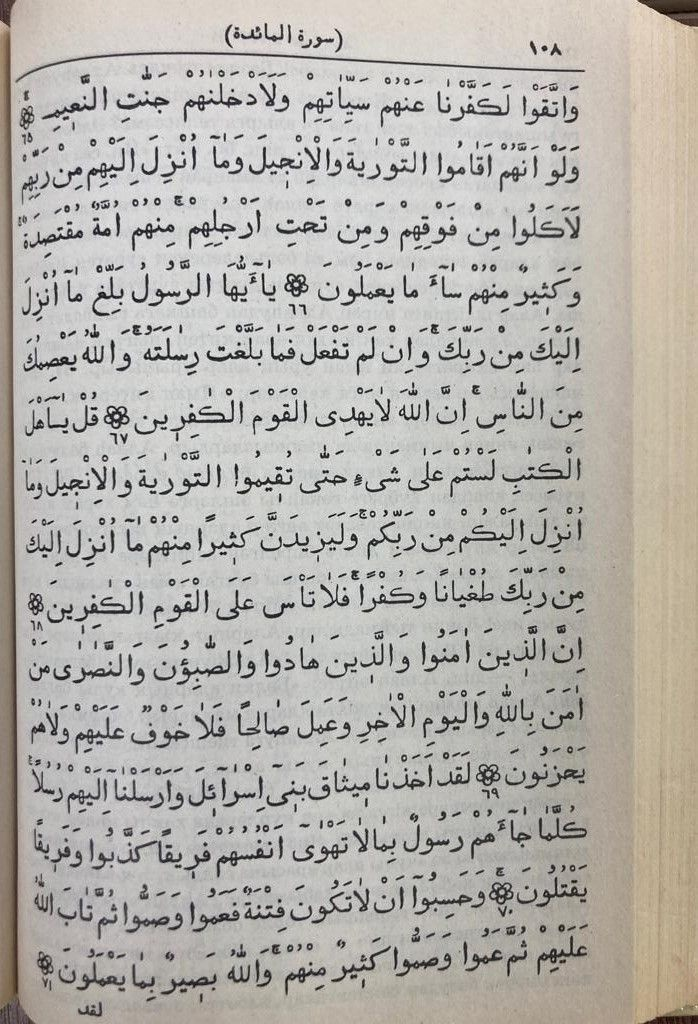 ١٠٨ (سورة المائدة)
وَاتَّقَوْا لَكَفَّرْنَا عَنْهُمْ سَيِّاٰتِهِمْ وَلَاَدْخَلْنَاهُمْ جَنَّاتِ النَّعِيمِ ٦٥
وَلَوْ اَنَّهُمْ اَقَامُوا التَّوْرٰيةَ وَالْاِنْجٖيلَ وَمَٓا اُنْزِلَ اِلَيْهِمْ مِنْ رَبِّهِمْ
لَاَكَلُوا مِنْ فَوْقِهِمْ وَمِنْ تَحْتِ اَرْجُلِهِمْ مِنْهُمْ اُمَّةٌ مُقْتَصِدَةٌ
وَكَثٖيرٌ مِنْهُمْ سَٓاءَ مَا يَعْمَلُونَ ٦٦ يَٓا اَيُّهَا الرَّسُولُ بَلِّغْ مَٓا اُنْزِلَ
اِلَيْكَ مِنْ رَبِّكَ وَاِنْ لَمْ تَفْعَلْ فَمَا بَلَّغْتَ رِسَالَتَهُ وَاللّٰهُ يَعْصِمُكَ
مِنَ النَّاسِ اِنَّ اللّٰهَ لَا يَهْدِى الْقَوْمَ الْكَافِرٖينَ ٦٧ قُلْ يَٓا اَهْلَ
الْكِتَابِ لَسْتُمْ عَلٰى شَىْءٍ حَتّٰى تُقٖيمُوا التَّوْرٰيةَ وَالْاِنْجٖيلَ وَمَٓا
اُنْزِلَ اِلَيْكُمْ مِنْ رَبِّكُمْ وَلَيَزٖيدَنَّ كَثٖيرًا مِنْهُمْ مَٓا اُنْزِلَ اِلَيْكَ
مِنْ رَبِّكَ طُغْيَانًا وَكُفْرًا فَلَا تَاْسَ عَلَى الْقَوْمِ الْكَافِرٖينَ ٦٨
اِنَّ الَّذٖينَ اٰمَنُوا وَالَّذٖينَ هَادُوا وَالصَّابِؤُنَ وَالنَّصَارٰى مَنْ
اٰمَنَ بِاللّٰهِ وَالْيَوْمِ الْاٰخِرِ وَعَمِلَ صَالِحًا فَلَا خَوْفٌ عَلَيْهِمْ وَلَا هُمْ
يَحْزَنُونَ ٦٩ لَقَدْ اَخَذْنَا مٖيثَاقَ بَنٖٓى اِسْرَٓائٖلَ وَاَرْسَلْنَٓا اِلَيْهِمْ رُسُلًا
كُلَّمَا جَٓاءَهُمْ رَسُولٌ بِمَا لَا تَهْوٰٓى اَنْفُسُهُمْ فَرٖيقًا كَذَّبُوا وَفَرٖيقًا
يَقْتُلُونَ ٧٠ وَحَسِبُٓوا اَنْ لَا تَكُونَ فِتْنَةٌ فَعَمُوا وَصَمُّوا ثُمَّ تَابَ اللّٰهُ
عَلَيْهِمْ ثُمَّ عَمُوا وَصَمُّوا كَثٖيرٌ مِنْهُمْ وَاللّٰهُ بَصٖيرٌ بِمَا يَعْمَلُونَ ٧١
لقد